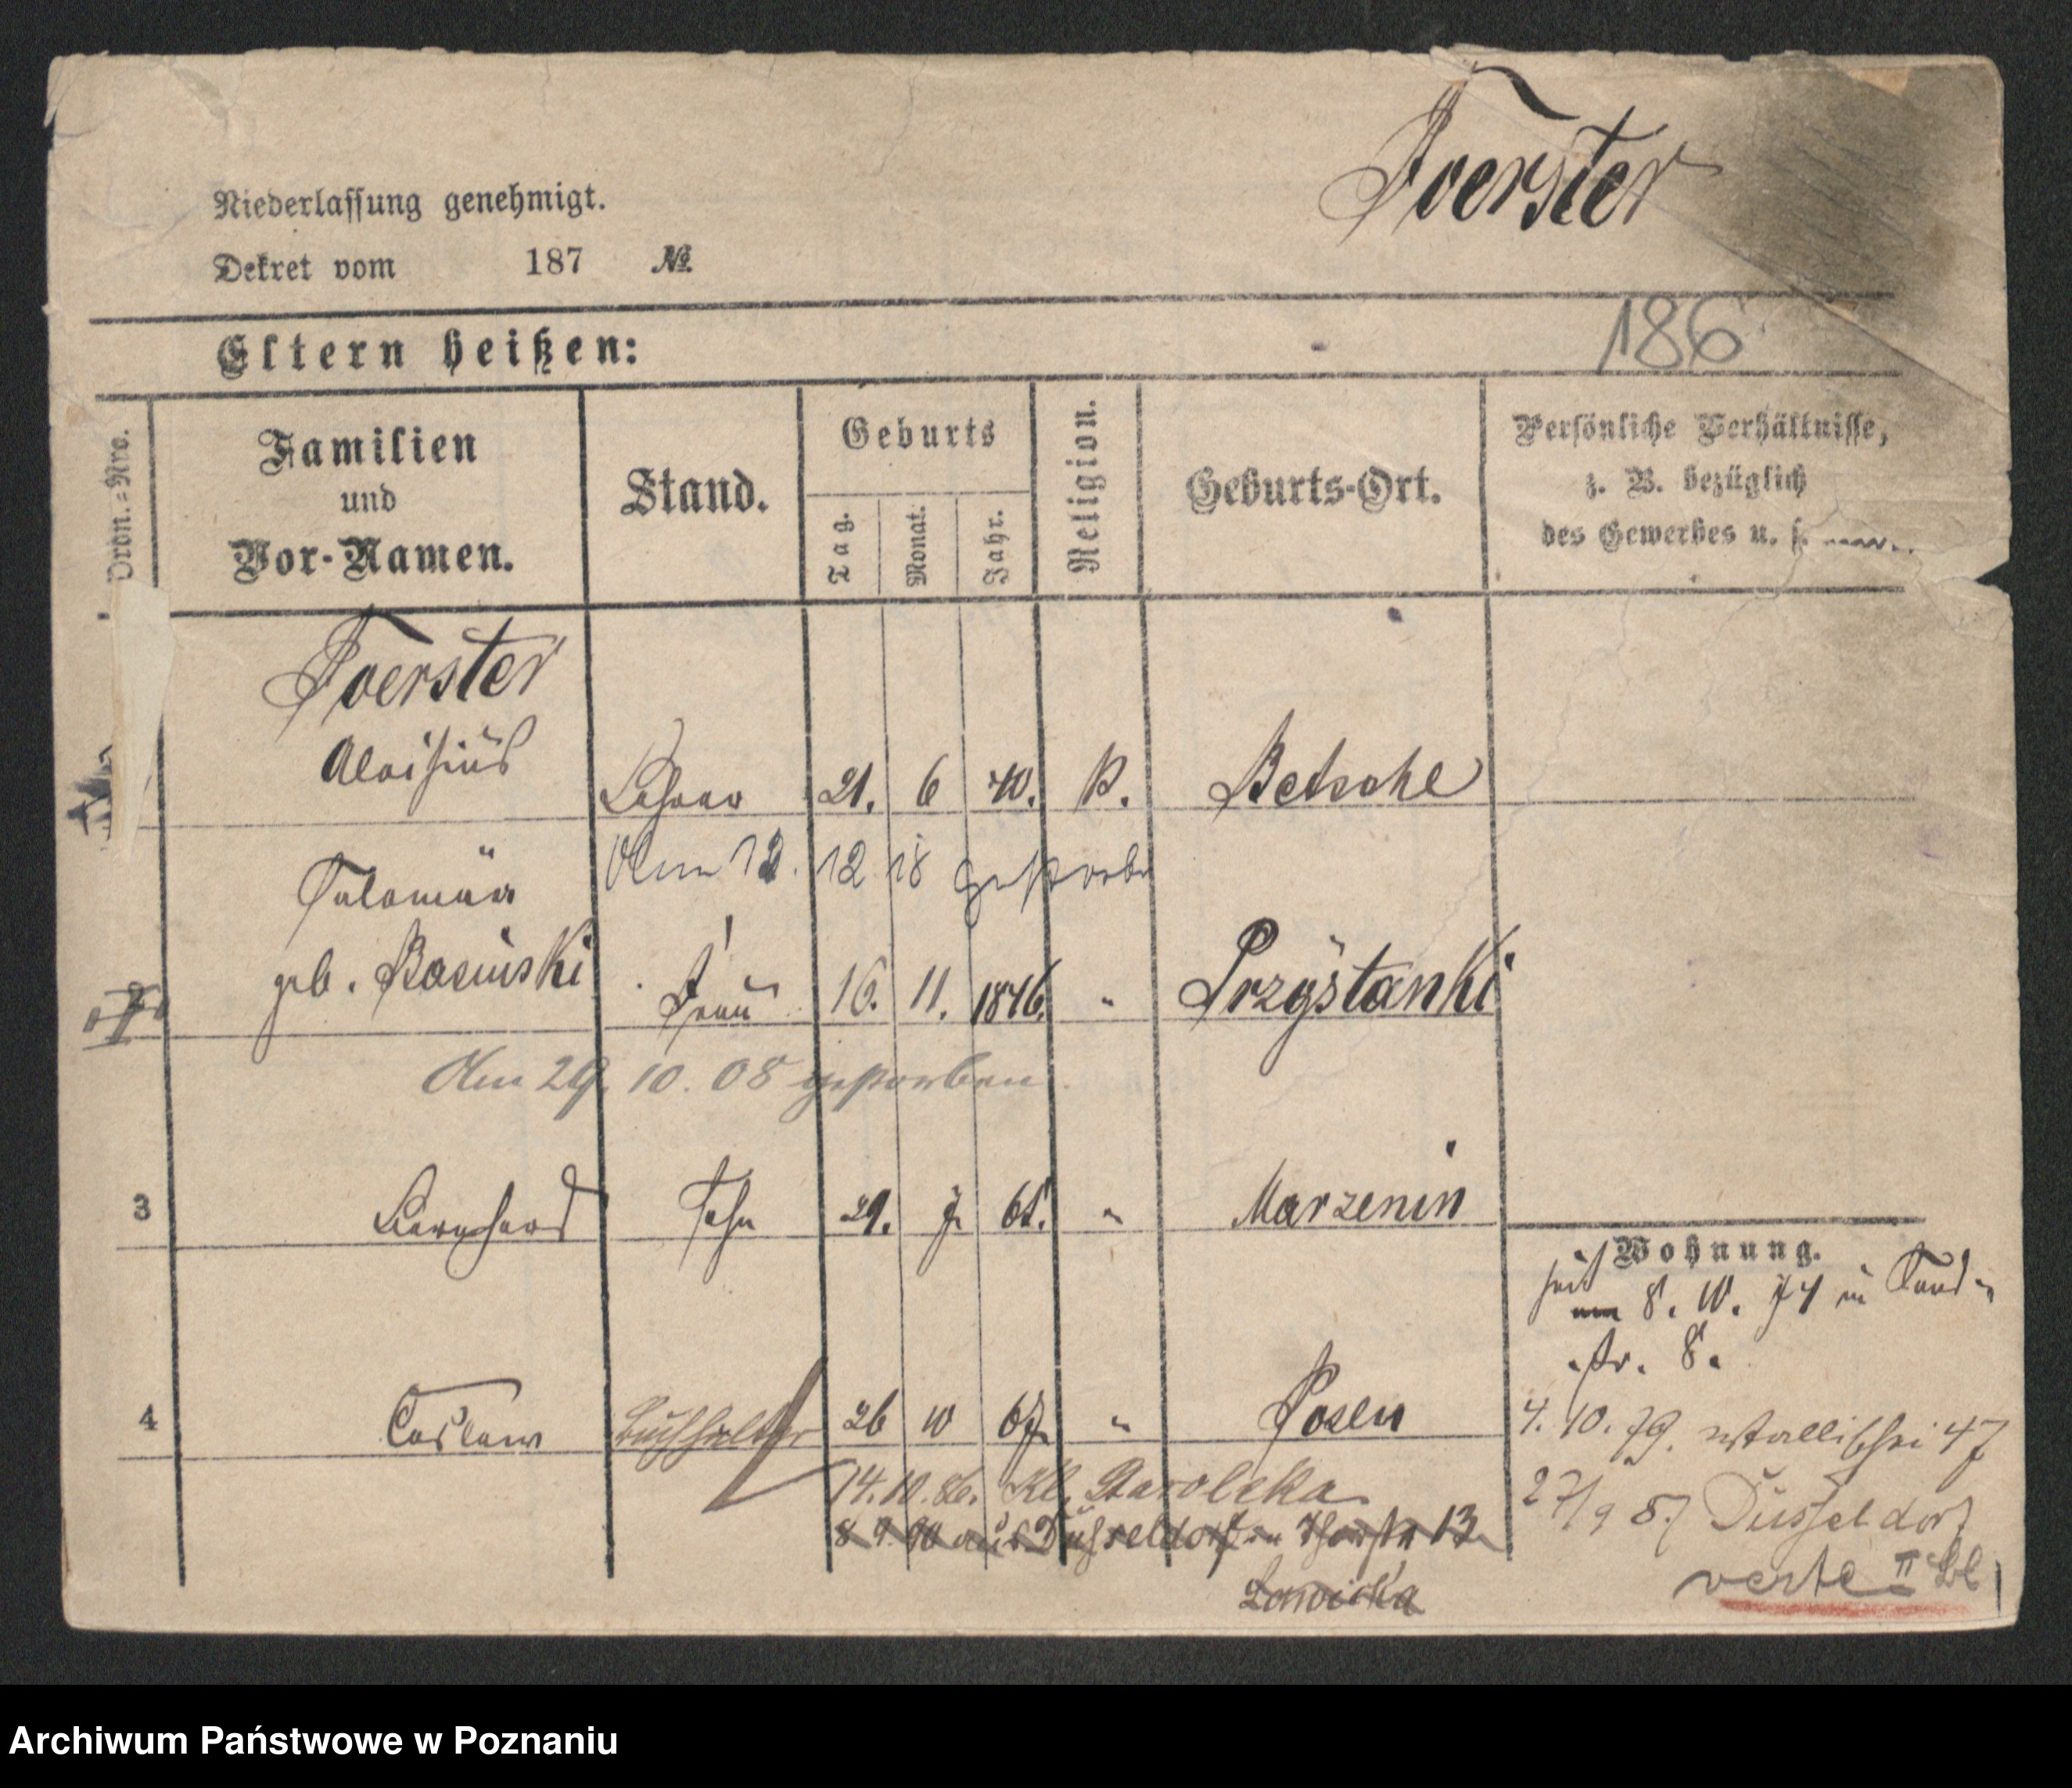 Foerster
Niederlassung genehmigt.
Dekret vom 187 №
186
Eltern heißen:
Ordn.=Nro.
Familien
und
Vor-Namen.
Stand.
Geburts
Tag.
Monat.
Jahr.
Religion.
Geburts-Ort.
Persönliche Verhältnisse,
z. B. bezüglich
des Gewerbes u. s.
Foerster
Aloisius Lehrer 21. 6 40. k. Betsche
Am 12. 12 18 gestorben
geb. Frau 16. 11. 1846. " Przystanki
2
Am 29. 10. 08 gestorben
3 Bernhard Sohn 29. 7. 65. " Marzenin
Wohnung.
seit 8. 10. 74 in Sand-
str. 8.
4 Buchhalter 26 10 67. " Posen
4. 10. 79. Wallischei 47
14.10.86. Kl. Staroleka
27/9 87 Düsseldorf
8 9. 90 aus Düsseldorf 13
verte II Bl